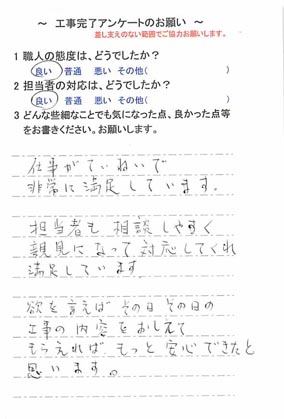 ～ 工事完了アンケートのお願い ～
差し支えのない範囲でご協力お願いします。
1 職人の態度は、どうでしたか?
良い 普通 悪い その他( )
2 担当者の対応は、どうでしたか?
良い 普通 悪い その他( )
3 どんな些細なことでも気になった点、良かった点等
をお書きください。お願いします。
仕事がていねいで
非常に満足しています。
担当者も相談しやすく
親見になって対応してくれ
満足しています。
欲を言えばその日その日の
工事の内容をおしえて
もらえれば もっと安心できたと
思います。